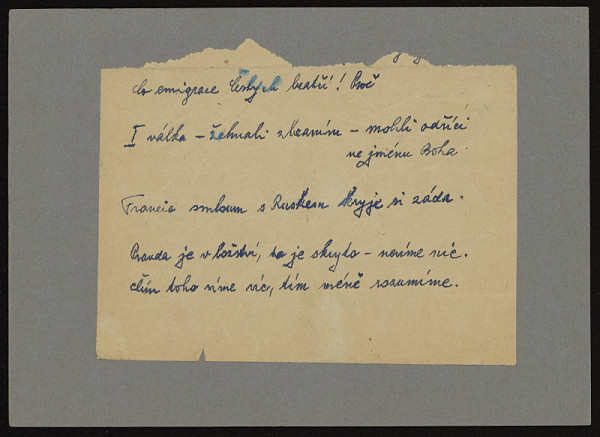 Co emigrace Českých bratří! Proč
I válka – žehnali zbraním – mohli odříci
ve jménu Boha.
Francie smlouvu s Ruskem kryje si záda.
Pravda je v božství, to je skryto – nevíme víc.
čím toho víme víc, tím méně rozumíme.